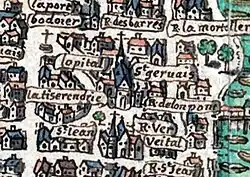 la porte
badoier
R. des barres
R. la mortelle
opital
S. geruais
latiserendrie
R. de lonpon
S. iean
R. Ver
Veital
R. S. Iean